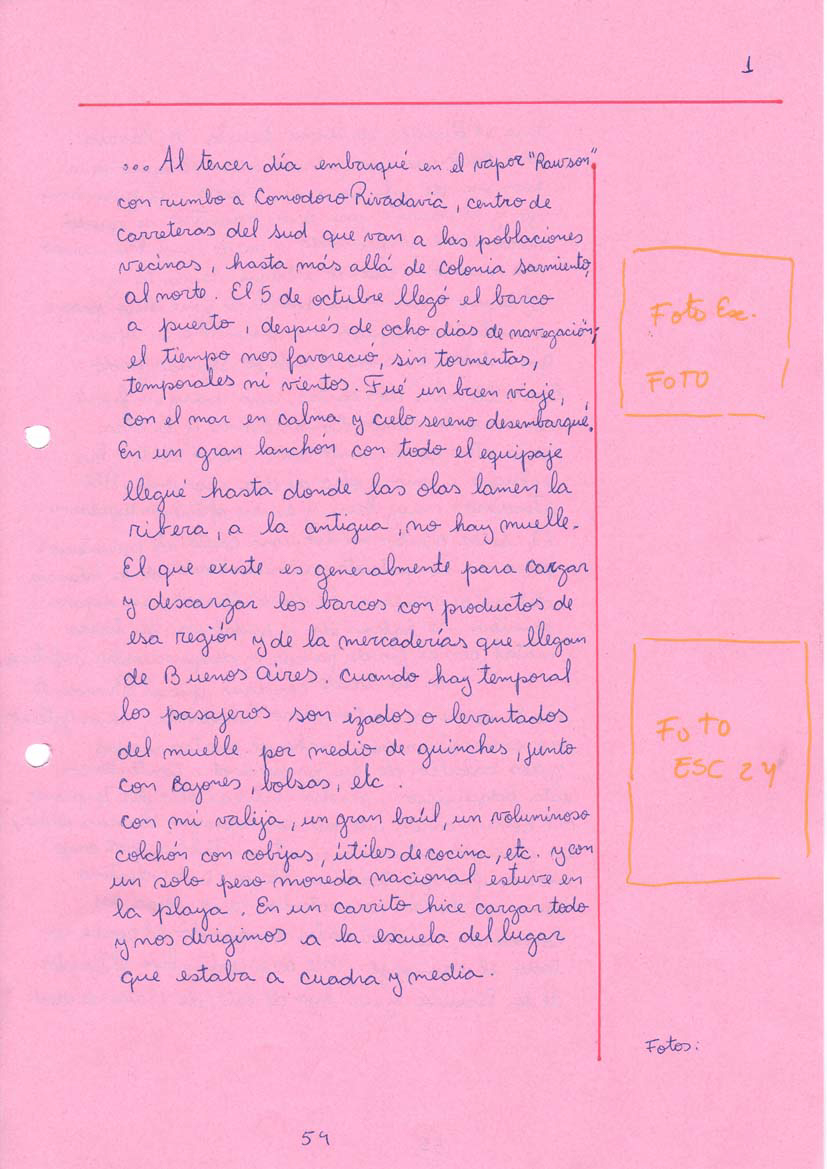 1
... Al tercer día embarqué en el vapor "Rawson"
con rumbo a Comodoro Rivadavia, centro de
carreteras del sud que van a las poblaciones
vecinas, hasta más allá de colonia sarmiento,
al norte. El 5 de octubre llegó el barco
a puerto, después de ocho días de navegación;
el tiempo nos favoreció, sin tormentas,
temporales ni vientos. Fué un buen viaje,
con el mar en calma y cielo sereno desembarqué.
En un gran lanchón con todo el equipaje
llegué hasta donde las olas lamen la
ribera, a la antigua, no hay muelle.
El que existe es generalmente para cargar
y descargar los barcos con productos de
esa región y de la mercaderías que llegan
de Buenos Aires. Cuando hay temporal
los pasajeros son izados o levantados
del muelle por medio de guinches, junto
con cajones, bolsas, etc.
con mi valija, un gran baúl, un voluminoso
colchón con cobijas, útiles de cocina, etc. y con
un solo peso moneda nacional estuve en
la playa. En un carrito hice cargar todo
y nos dirigimos a la escuela del lugar
que estaba a cuadra y media.
Foto Esc.
FOTO
FOTO
ESC 24
Fotos:
54